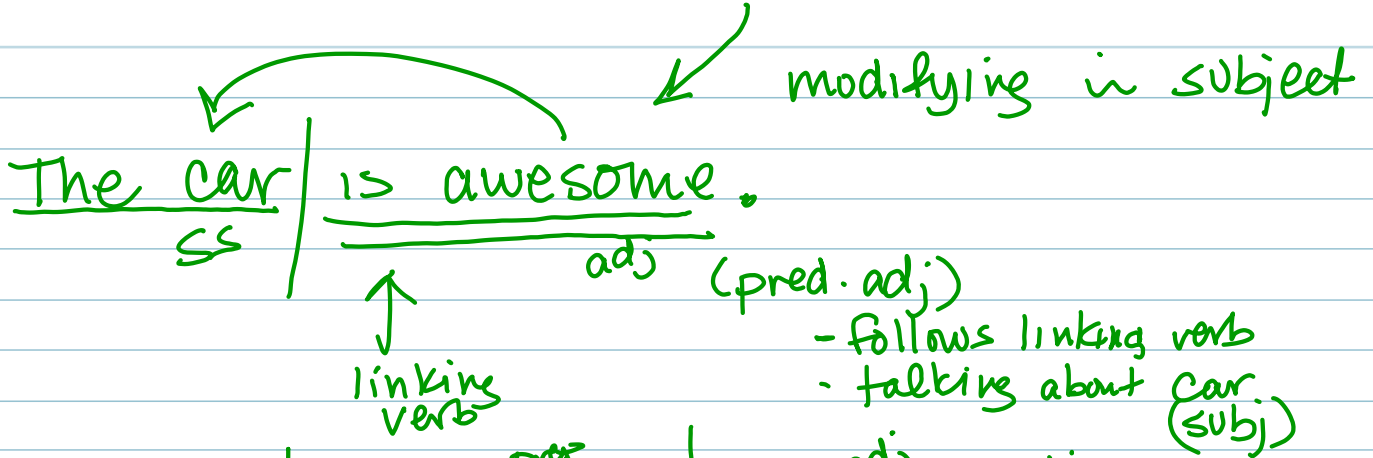 modifying in subject
The car is awesome.
ss
adj
(pred. adj)
- follows linking verb
- talking about car
(subj)
linking
verb
adj